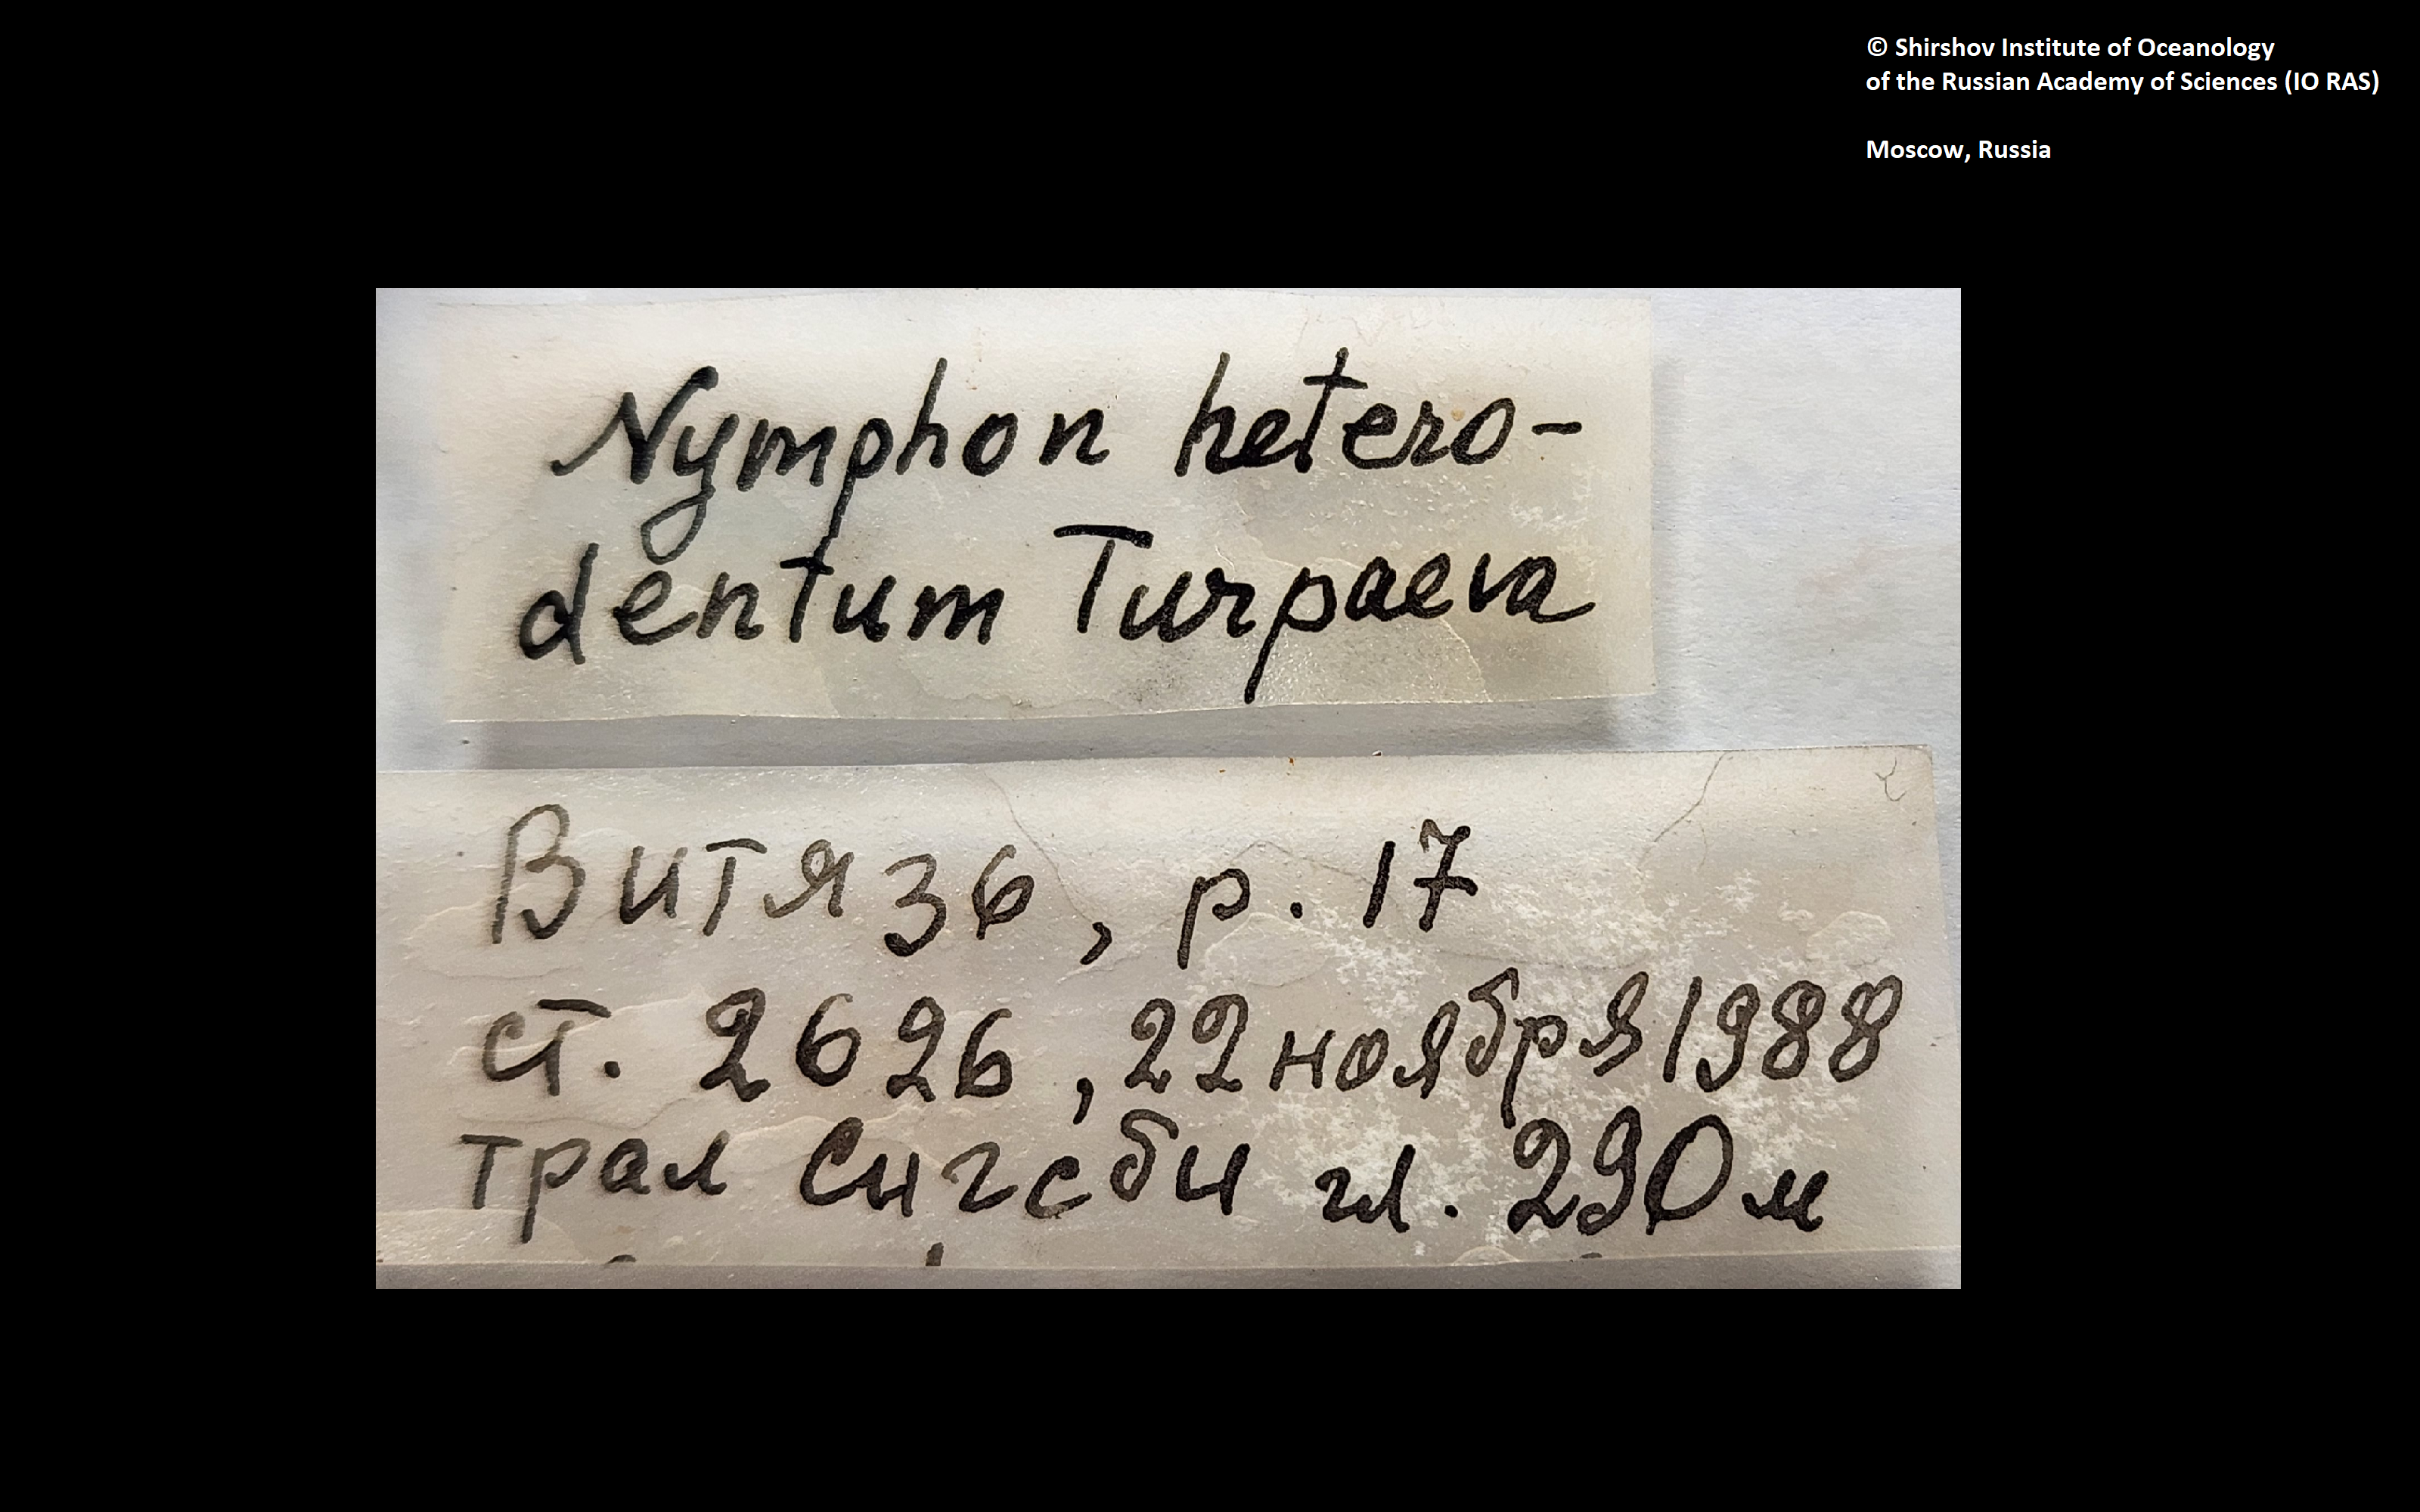 © Shirshov Institute of Oceanology
of the Russian Academy of Sciences (IO RAS)
Moscow, Russia
Nymphon hetero-
dentum Turpaeva
Витязь, р. 17
ст. 2626, 22 ноября 1988
трал Сигсби гл. 290 м